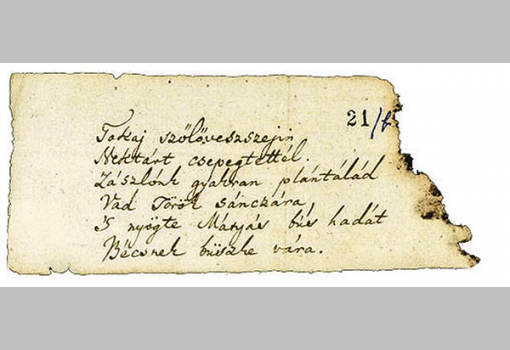 21/f
Tokaj szőlőveszszejin
Nektárt csepegtettél.
Zászlónk gyakran plantálád
Vad Török sánczára,
'S nyögte Mátyás bús hadát
Bécsnek büszke vára.